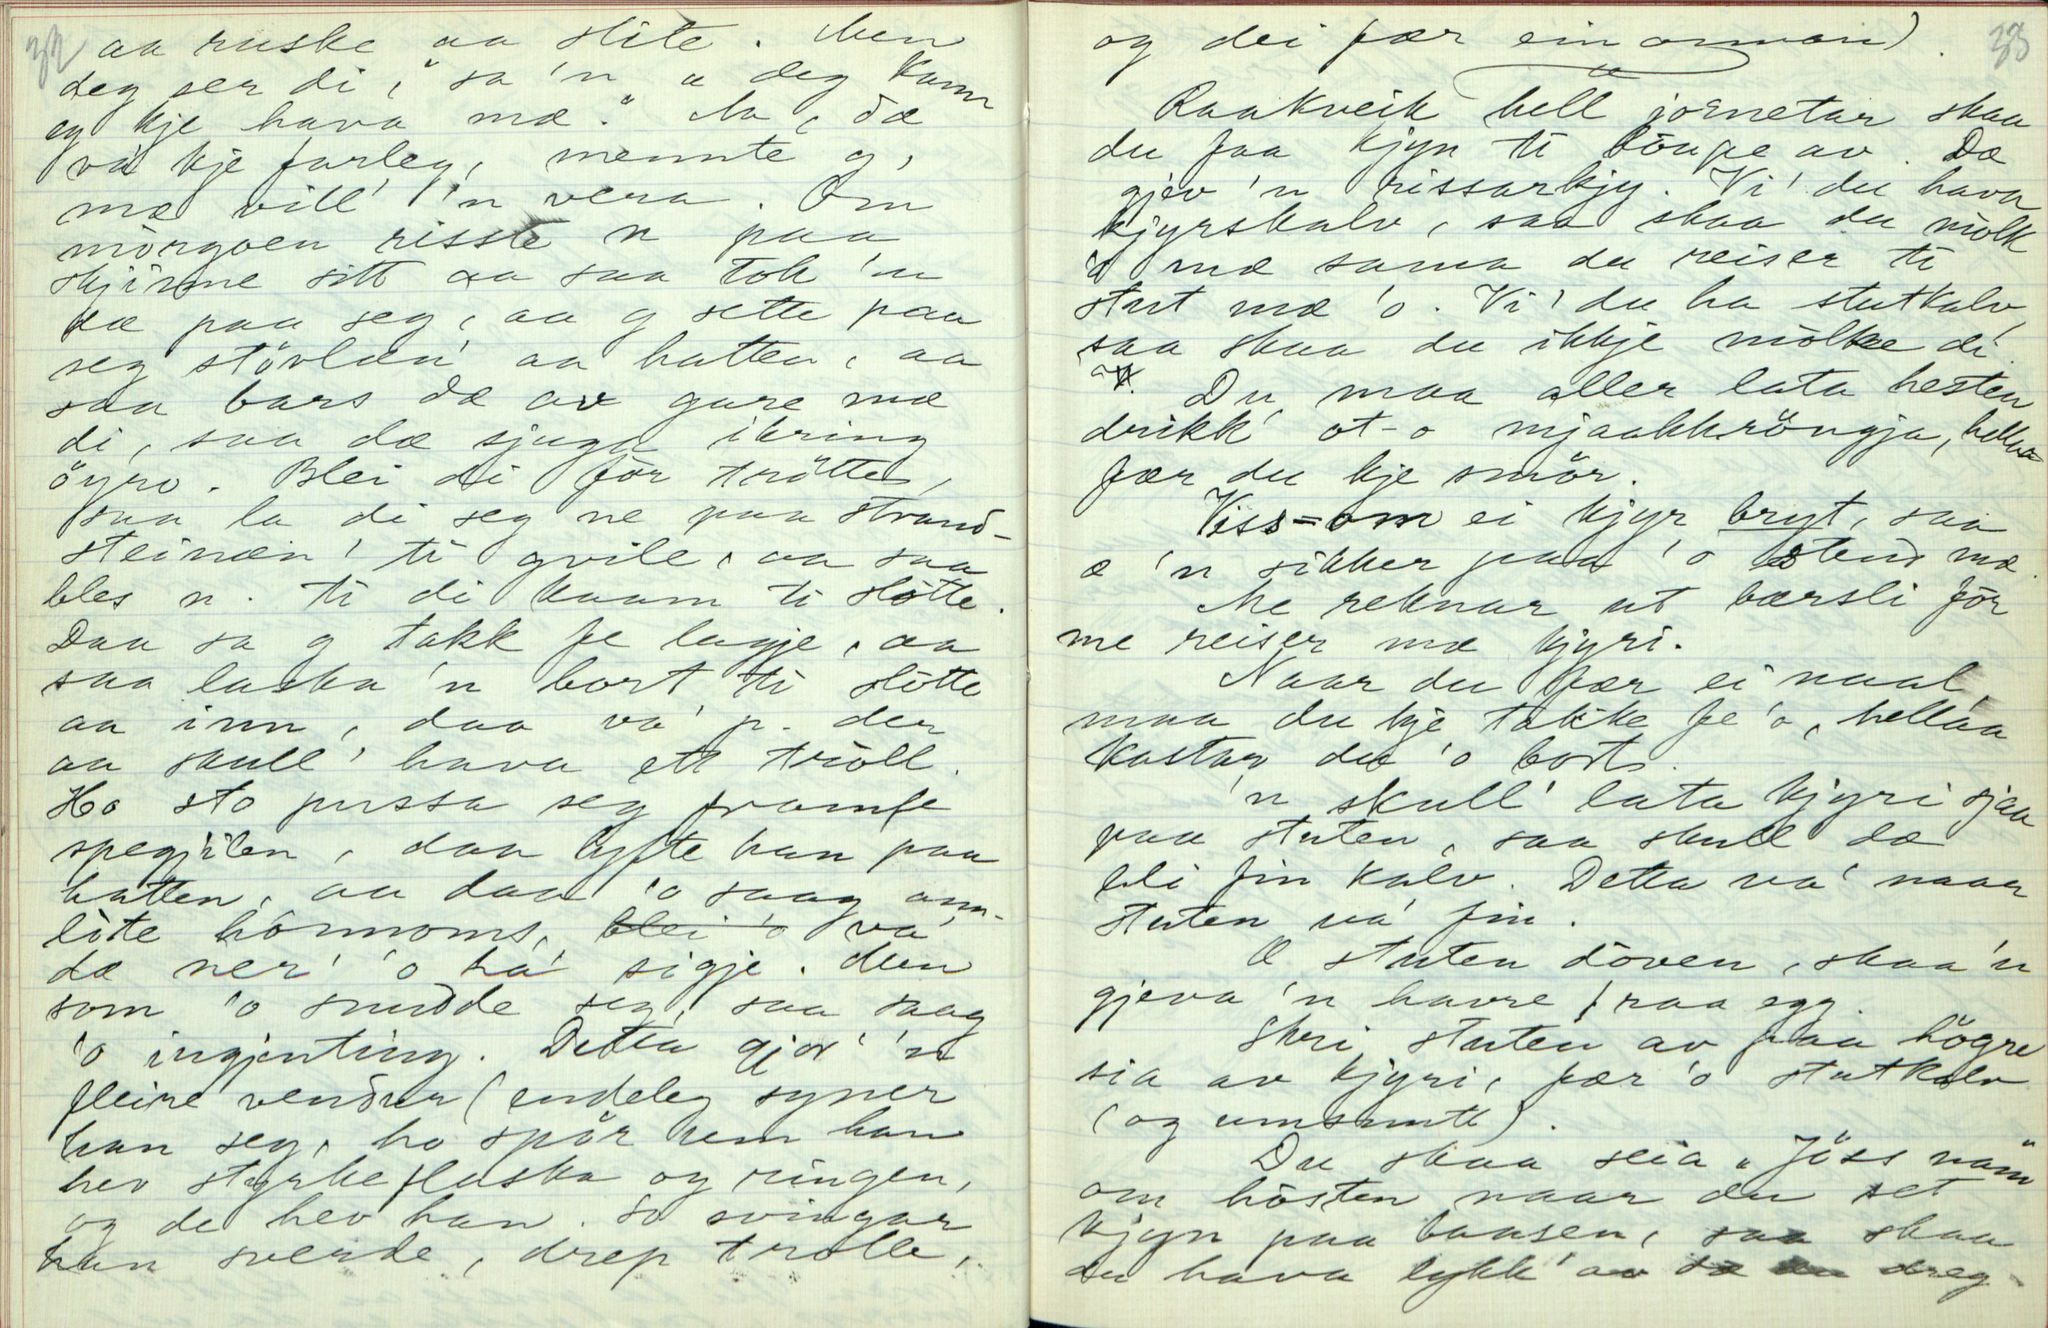 32
aa ruske aa slite. Men
deg ser di," sa 'n "deg kann
eg kje hava mæ." Na, dæ
va' kje farleg, mennte g,
mæ vill' 'n vera. Om
mòrgoen risste n paa
skjinne sitt aa saa tok 'n
dæ paa seg, aa g sette paa
seg støvlæn' aa hatten, aa
saa bars dæ av gare mæ
di, saa dæ sjuga ikring
öyro. Blei di för tròtte,
saa la di seg ne paa strand-
steinæn' ti qvile, aa saa
bles n. ti di kaam ti slòtte.
Daa sa g takk fe lagje, aa
saa laska 'n bort ti slòtte
aa inn, daa va' p. der
aa skull' hava ett tròll.
Ho sto pussa seg framfe
spegjilen, daa lyfte han paa
hatten, aa daa 'o saag ann-
lite hònnoms, blei 'o va'
dæ ner' 'o ha' sigje. Men
som 'o snudde seg, saa saag
'o ingjenting. Detta gjor' 'n
fleire vendur (endeleg syner
han seg, ho spör um han
hev styrkeflaska og ringen,
og de hev han. So svingar
han sverde, drep trolle,
33
og dei fær ein annan).
Raakveik hell jornetar skaa
du faa kjyn ti löupe av. Dæ
gjev 'n rissarkjy. Vi' du hava
kjyrskalv, saa skaa du mòlk
'o mæ sama du reiser ti
stut mæ 'o. Vi' du ha stutkalv,
saa skaa du ikkje mòlke di
av. Du maa aller lata hesten
drikk' ot-o mjaakkröngja, hella
fær du kje smör.
Viss-om ei kjyr bryt, saa
æ 'n sikker paa 'o stend mæ.
Me reknar ut bærsli för
me reiser mæ kjyri.
Naar du fær ei naal,
maa du kje takke fe 'o, hellaa
kastar du 'o bort.
'n skull' lata kjyri sjaa
paa stuten, saa skull dæ
bli fin kalv. Detta va' naar
stuten va' fin.
Æ stuten döven, skaa 'n
gjeva 'n havre / raa egg.
Skri stuten av paa högre
sia av kjyri, fær 'o stutkalv
(og umsnutt).
Du skaa seia "Jöss namn"
om hòsten naar du set
kjyn paa baasen, saa skaa
du hava lykk' av dæ du dreg